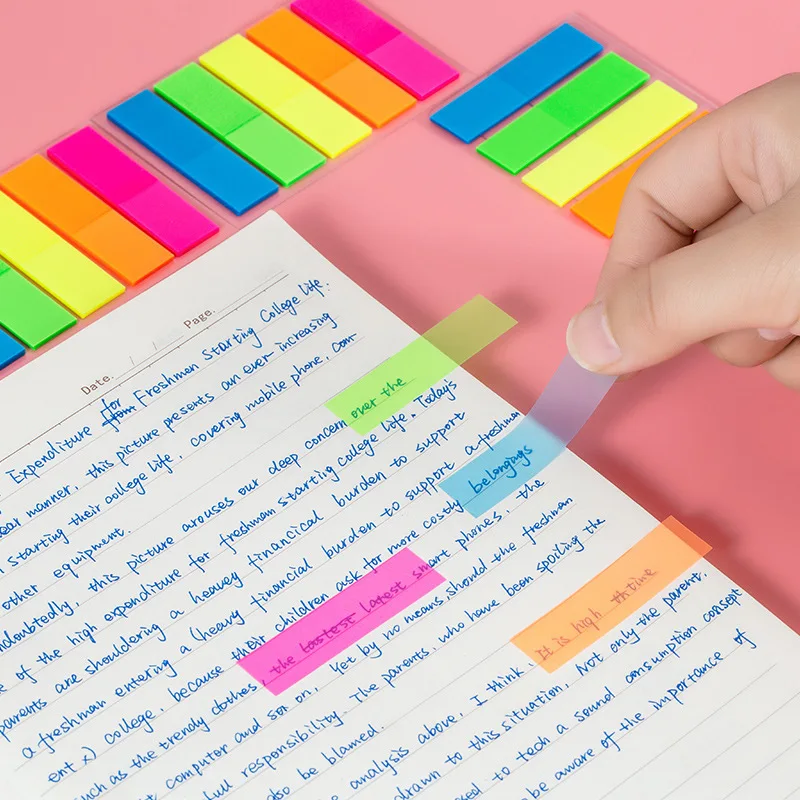 Date. / / Page.
Expenditure for Freshmen Starting College life.
ear manner, this picture presents an ever-increasing
starting their college life, covering mobile phone, com-
other equipment.
ndoubtedly, this picture arouses our deep concern over the
e of the high expenditure for freshmen starting college life. Today's
parents are shouldering a heavy financical burden to support
a freshman entering a (heavy financial burden to support a freshman
ent x) college, because their children ask for more costly belongings
such as the trendy clothes, the lastest latest smart phones, the
t computer and son on, Yet by no means should the freshman
full responsibility. The parents, who have been spoiling the
lso be blamed.
e analysis above, I think, It is high th time
drawn to this situation. Not only the parent,
sed to tech a sound consumption consept
be aware of the importance of